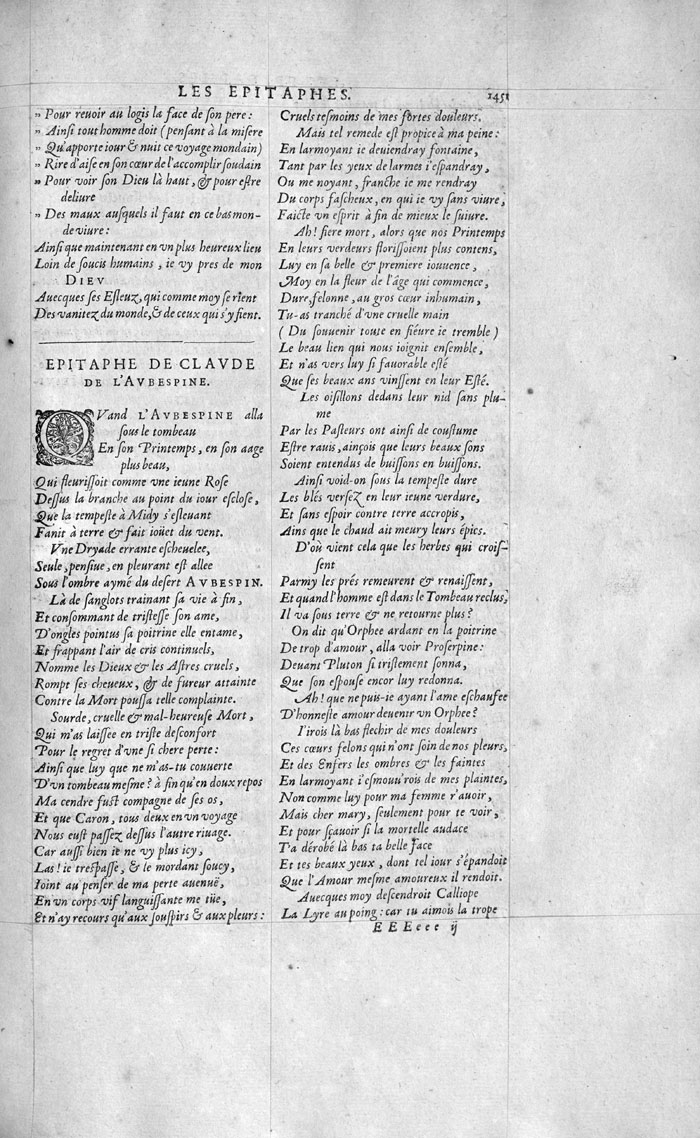 LES EPITAPHES. 1451
" Pour reuoir au logis la face de son pere:
" Ainsi tout homme doit (pensant à la misere
" Qu'apporte iour & nuit ce voyage mondain)
" Rire d'aise en son cœur de l'accomplir soudain
" Pour voir son Dieu là haut, & pour estre
deliure
" Des maux ausquels il faut en ce bas mon-
de viure:
Ainsi que maintenant en vn plus heureux lieu
Loin de soucis humains, ie vy pres de mon
DIEV
Auecques ses Esleuz, qui comme moy se rient
Des vanitez du monde, & de ceux qui s'y fient.
EPITAPHE DE CLAVDE
DE L'AVBESPINE.
QVand L'AVBESPINE alla
sous le tombeau
En son Printemps, en son aage
plus beau,
Qui fleurissoit comme vne ieune Rose
Dessus la branche au point du iour esclose,
Que la tempeste à Midy s'esleuant
Fanit à terre & fait ioüet du vent.
Vne Dryade errante escheuelee,
Seule, pensiue, en pleurant est allee
Sous l'ombre aymé du desert AVBESPIN.
Là de sanglots trainant sa vie à fin,
Et consommant de tristesse son ame,
D'ongles pointus sa poitrine elle entame,
Et frappant l'air de cris continuels,
Nomme les Dieux & les Astres cruels,
Rompt ses cheueux, & de fureur attainte
Contre la Mort poussa telle complainte.
Sourde, cruelle & mal-heureuse Mort,
Qui m'as laissee en triste desconfort
Pour le regret d'vne si chere perte:
Ainsi que luy que ne m'as-tu couuerte
D'vn tombeau mesme? à fin qu'en doux repos
Ma cendre fust compagne de ses os,
Et que Caron, tous deux en vn voyage
Nous eust passez dessus l'autre riuage.
Car aussi bien ie ne vy plus icy,
Las! ie trespasse, & le mordant soucy,
Ioint au penser de ma perte auenuë,
En vn corps vif languissante me tüe,
Et n'ay recours qu'aux souspirs & aux pleurs:
Cruels tesmoins de mes fortes douleurs.
Mais tel remede est propice à ma peine:
En larmoyant ie deuiendray fontaine,
Tant par les yeux de larmes i'espandray,
Ou me noyant, franche ie me rendray
Du corps fascheux, en qui ie vy sans viure,
Faicte vn esprit à fin de mieux le suiure.
Ah! fiere mort, alors que nos Printemps
En leurs verdeurs florissoient plus contens,
Luy en sa belle & premiere iouuence,
Moy en la fleur de l'âge qui commence,
Dure felonne, au gros cœur inhumain,
Tu-as tranché d'vne cruelle main
(Du souuenir toute en fiéure ie tremble)
Le beau lien qui nous ioignit ensemble,
Et n'as vers luy si fauorable esté
Que ses beaux ans vinssent en leur Esté.
Les oisillons dedans leur nid sans plu-
me
Par les Pasteurs ont ainsi de coustume
Estre rauis, ainçois que leurs beaux sons
Soient entendus de buissons en buissons.
Ainsi void-on sous la tempeste dure
Les blés versez en leur ieune verdure,
Et sans espoir contre terre accropis,
Ains que le chaud ait meury leurs épics.
D'où vient cela que les herbes qui crois-
sent
Parmy les prés remeurent & renaissent,
Et quand l'homme est dans le Tombeau reclus,
Il va sous terre & ne retourne plus?
On dit qu'Orphee ardant en la poitrine
De trop d'amour, alla voir Proserpine:
Deuant Pluton si tristement sonna,
Que son espouse encor luy redonna.
Ah! que ne puis-ie ayant l'ame eschaufee
D'honneste amour deuenir vn Orphee?
I'irois là bas flechir de mes douleurs
Ces cœurs felons qui n'ont soin de nos pleurs,
Et des Enfers les ombres & les faintes
En larmoyant i'esmouu'rois de mes plaintes,
Non comme luy pour ma femme r'auoir,
Mais cher mary, seulement pour te voir,
Et pour sçauoir si la mortelle audace
T'a dérobé là bas ta belle face
Et tes beaux yeux, dont tel iour s'épandoit
Que l'Amour mesme amoureux il rendoit.
Auecques moy descendroit Calliope
La Lyre au poing: car tu aimois la trope
EEEeee ij